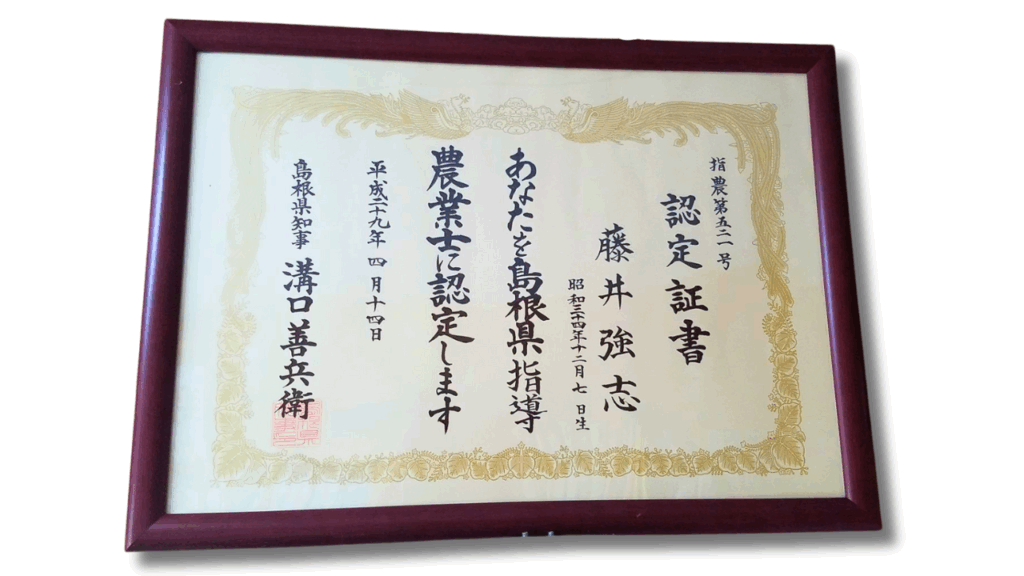 指農第五二一号
認定証書
藤井強志
昭和三十四年十二月七日生
あなたを島根県指導
農業士に認定します
平成二十九年四月十四日
島根県知事 溝口善兵衛